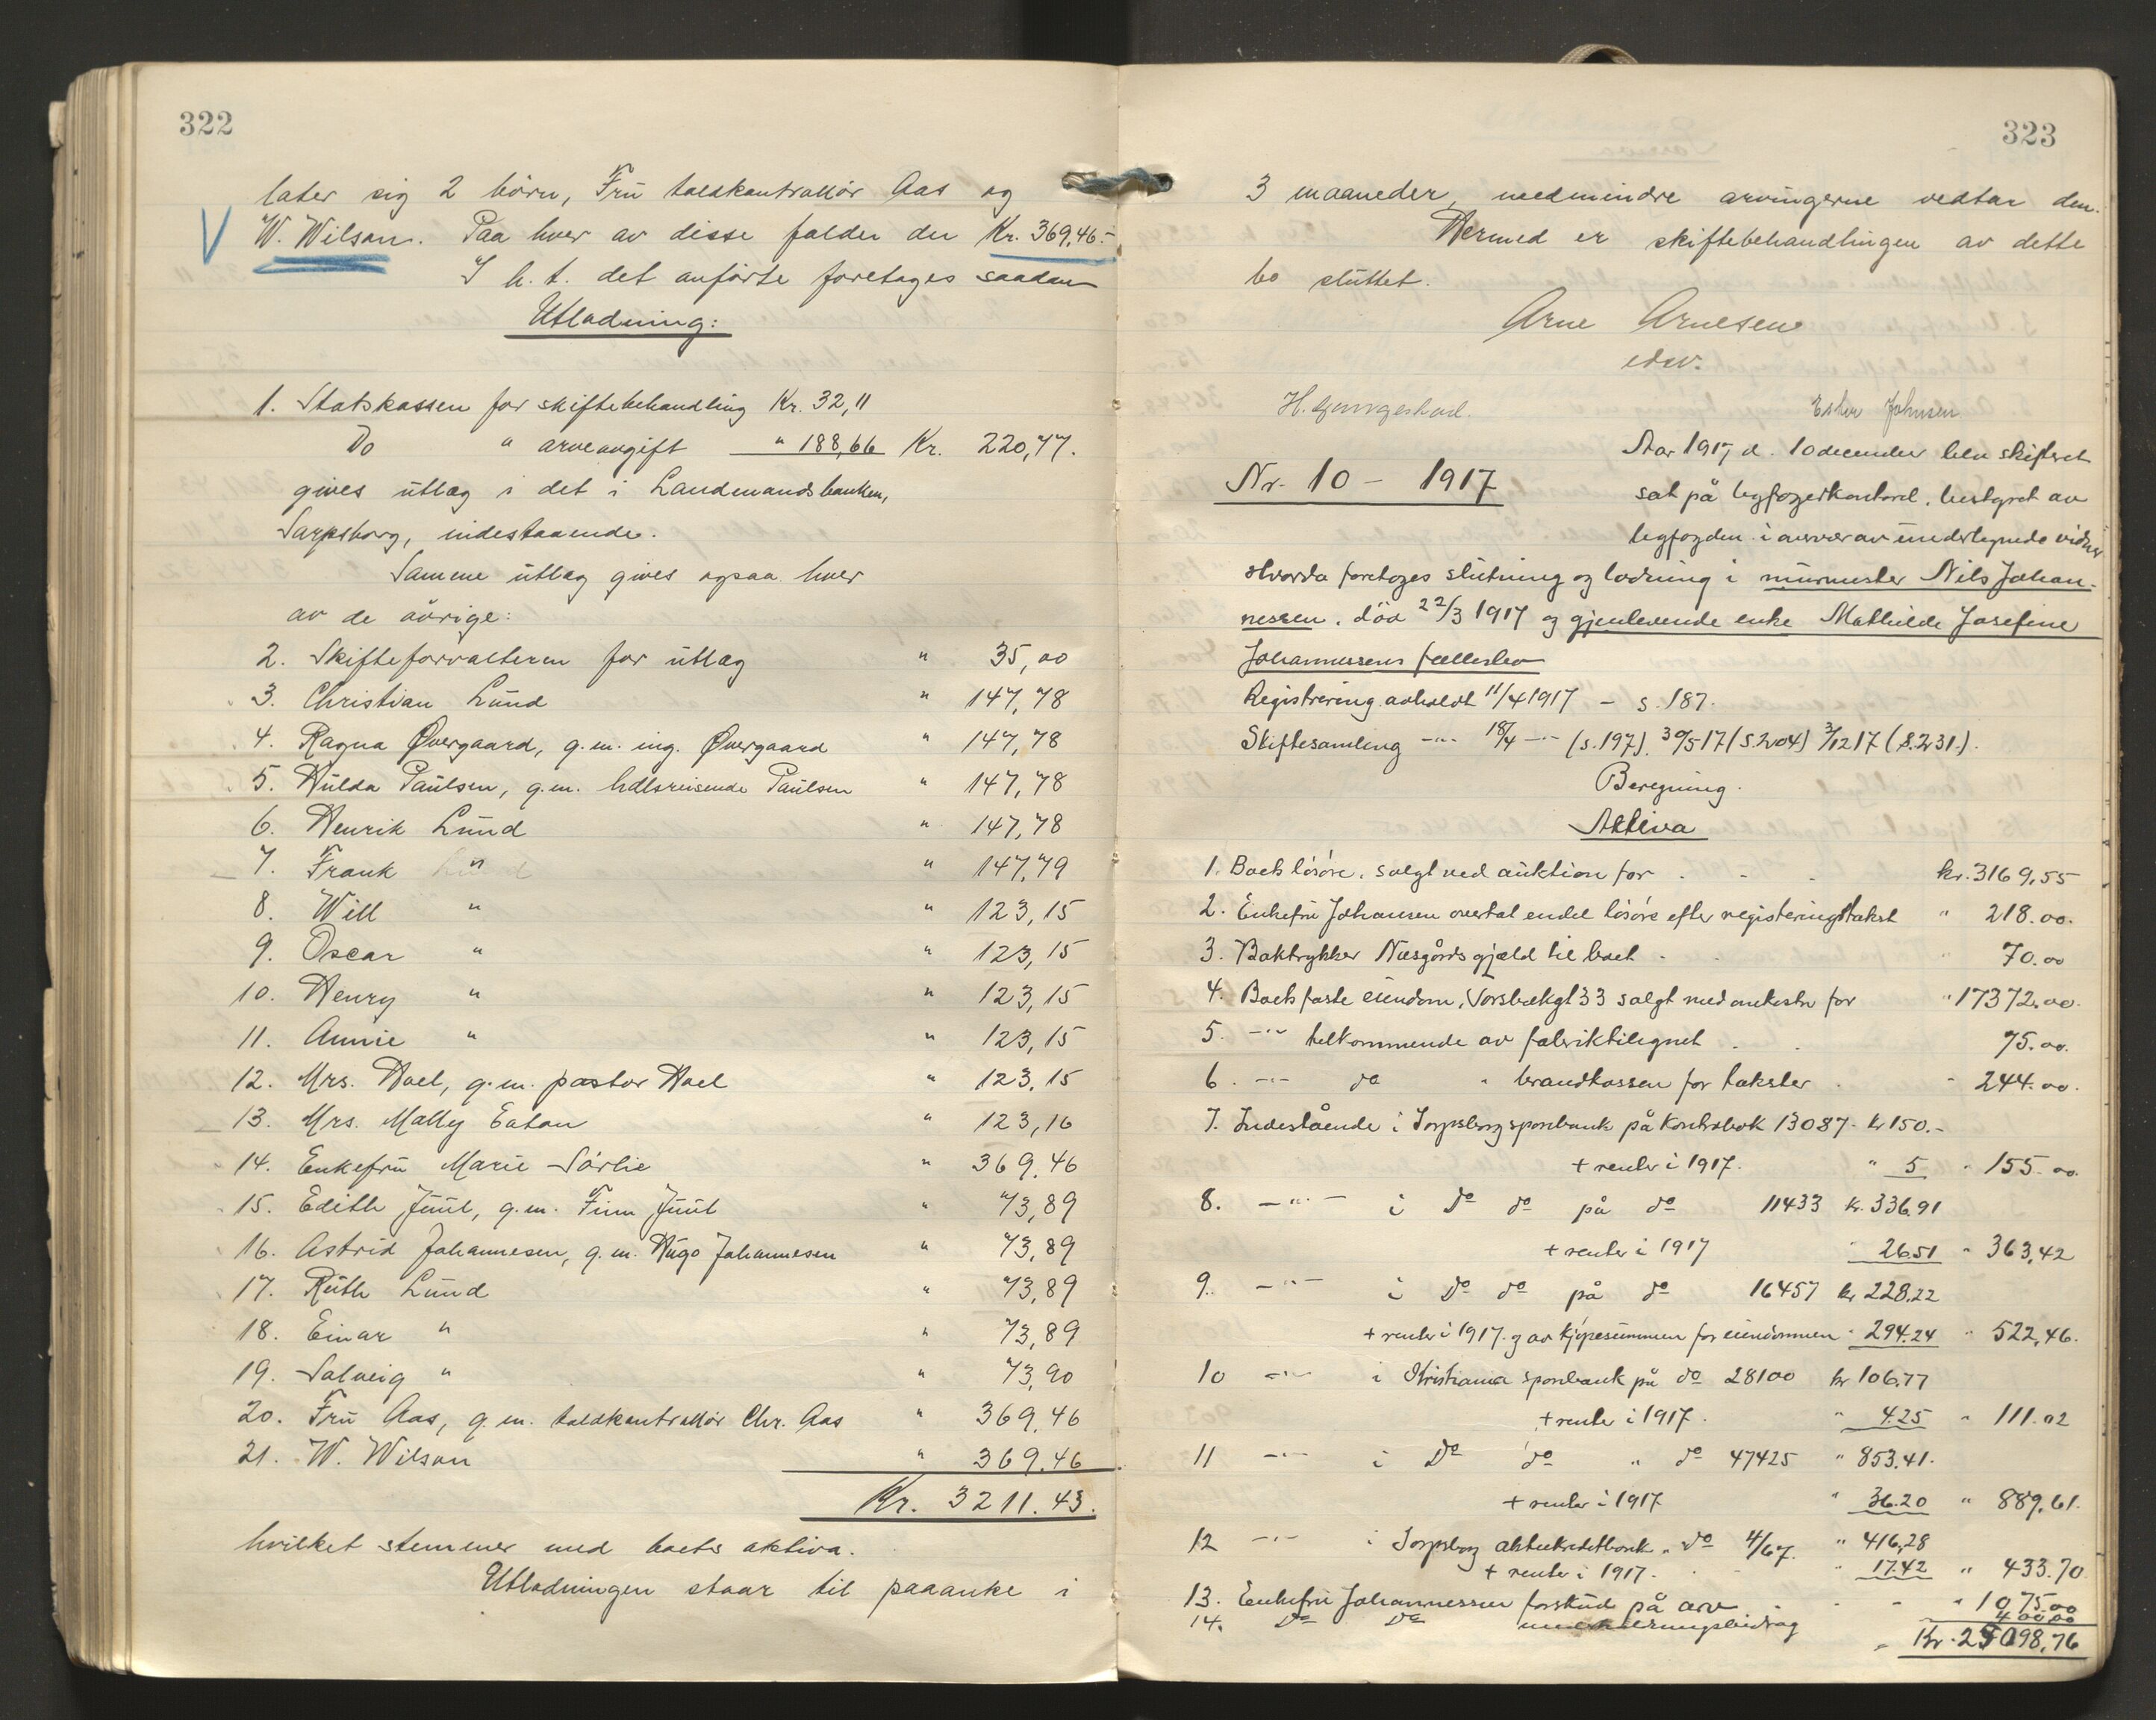 322
later sig 2 börn, Frü toldkontrollör Aas og
W. Wilson. Paa hver av disse falder der Kr. 369,46.-
I h. t. det anförte foretages saadan
Utlodning:
1. Statskassen for skiftebehandling Kr. 32,11
Do " arveavgift " 188,66 Kr. 220,77.
gives utlæg i det i Landmandsbanken,
Sarpsborg, indestaaende.
Samme utlæg gives ogsaa hver
av de övrige:
2. Skifteforvalteren for utlæg " 35,00
3. Christian Lund " 147,78
4. Ragna Øvergaard, g.m. ing. Øvergaard " 147,78
5. Hulda Paulsen, g.m. hdlsreisende Paulsen " 147,78
6. Henrik Lund " 147,78
7. Frank " " 147,79
8. Will " " 123,15
9. Oscar " " 123,15
10. Henry " " 123,15
11. Annie " " 123,15
12. Mrs. Hoel, g.m. pastor Hoel " 123,15
13. Mrs. Mally Eaton " 123,16
14. Enkefru Marie Sörlie " 369,46
15. Edith Juul, g.m. Finn Juul " 73,89
16. Astrid Johannesen, g.m. Hugo Johannesen " 73,89
17. Ruth Lund " 73,89
18. Einar " " 73,89
19. Solveig " " 73,90
20. Fru Aas, g.m. toldkontrollör Chr. Aas " 369,46
21. W. Wilson " 369.46
Kr. 3211.43.
hvilket stemmer med boets aktiva.
Utlodningen staar til paaanke i
323
3 maaneder, medmindre arvingerne vedtar den.
Hermed er skiftebehandlingen av dette
bo sluttet.
Arne Arnesen
edsv.
Ester Johnsen
Aar 1917 d. 10 december blev skifteret
Nr. 10 - 1917
sat på byfogetkontoret, bestyret av
byfogden i overvær av undertegnede vidner
Hvorda foretoges slutning og lodning i murmester Nils Johan-
nessen, död 22/3 1917 og gjenlevende enke Mathilde Josefine
Johannessens fællesbo
Registrering avholdt 11/4 1917 - s. 187.
Skiftesamling -"- 18/4 -"- (s.197), 30/5 17 (s.204) 3/12 17 (s.231.).
Beregning.
Aktiva
1. Boets lösöre, solgt ved auktion for kr. 3169,55
2. Enkefru Johansen overtat endel lösöre efter registeringstakst " 218.00.
3. Boktrykker Næsgårds gjæld til boet " 70.00
4. Boets faste eiendom, solgt med for " 17372.00.
5. -"- tilkommende av 75.00.
6. -"- do " brandkassen for takster " 244.00.
7. Indestående i Sarpsborg sparebank på kontrabok 13087 - kr 150.-
+ renter i 1917. " 5 " 155.00.
8. -"- i Do do på do 11433 kr. 336.91
+ renter i 1917 " 26.51 " 363,42
9. -"- i Do do på do 16457 kr 228.22
+ renter i 1917 og av kjøpesummen for eiendommen " 294.24 " 522,46.
10 -"- i Kristiania sparebank på do 28100 kr 106.77
+ renter i 1917. " 4.25 " 111.02
11 -"- i Do do " do 47425 " 853.41.
+ renter i 1917 " 36.20 " 889,61.
12 -"- i Sarpsborg " do 4/67. " 416,28
+ renter i 1917. " 17.42 " 433.70
13. Enkefru Johannessen forskud på arv " 1075.00
14. Do Do 400.00
Kr. 25098,76